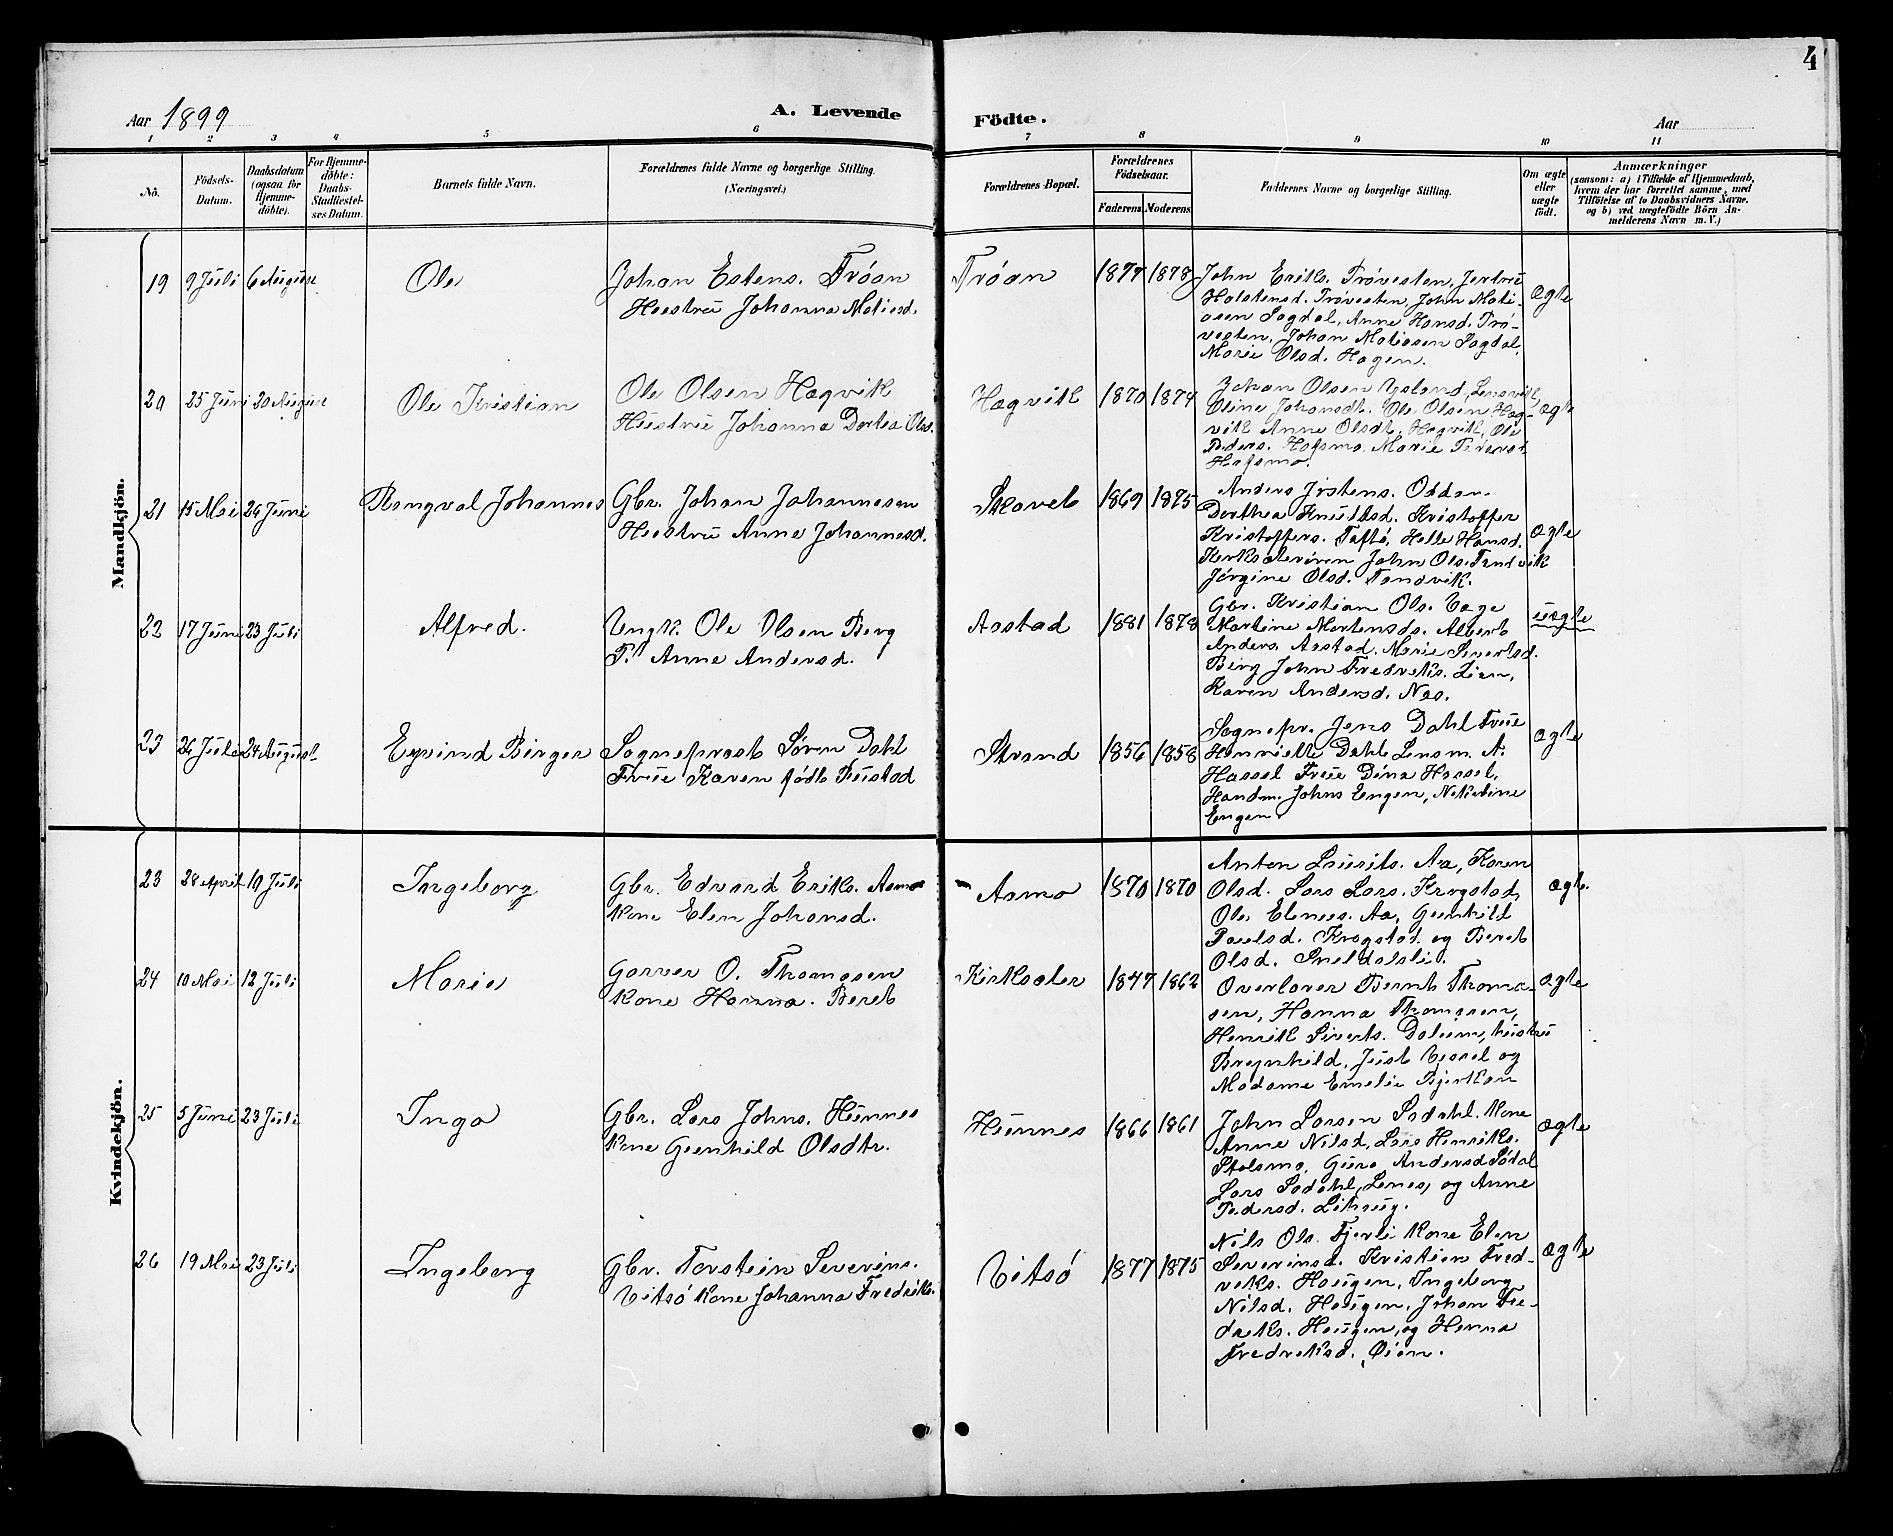 4
Aar 1899
A. Levende
Födte.
Aar
1 2 3 4 5 6 7 8 9 10 11
No.
Födsels-
Datum.
Daabsdatum
(ogsaa for
Hjemme-
döbte).
For Hjemme-
döbte:
Daabs-
Stadfæstel-
ses Datum.
Barnets fulde Navn.
Forældrenes fulde Navne og borgerlige Stilling.
(Næringsvei.)
Forældrenes Bopæl.
Forældrenes
Födselsaar.
Faderens
Moderens
Faddernes Navne og borgerlige Stilling.
Om ægte
eller
uægte
födt.
Anmærkninger
(saasom: a) i Tilfælde af Hjemmedaab,
hvem der har forrettet samme, med
Tilföielse af to Daabsvidners Navne.
og b) ved uægtefödte Börn An-
melderens Navn m. V.)
Mandkjön.
19 9 Juli 6 August Ole
Johan Estens. Trøan
Hustru Johanna Matiesd.
Trøan 1877 1878
John Eriks. Trøvesten, Jertrü
Halstensd. Trøvesten, John Mati-
asen Sagdal, Anne Hansd. Trø-
vesten, Johan Matiasen Sagdal,
Marie Olsd. Hagen.
ægte
20 25 Juni 20 August Ole Kristian
Ole Olsen Hagvik
Hustru Johanna Dortea Olsd.
Hagvik 1870 1874
Johan Olsen Ysland, Lensvik,
Oline Johansdt. Ole Olsen Hag-
vik Anne Olsdt, Hagvik, Ole
Peders. Hafsmo, Marie Pedersd
Hafsmo.
ægte
21 15 Mai 24 Juni Rangval Johannes
Gbr. Johan Johannesen
Hustru Anne Johannesd.
Skavet 1869 1875
Anders Jostens. Oddan
Dorthea Knuttsd. Kristoffer
Kristoffers. Taftø, Helle Hansd.
John Ols. Tandvik
Jørgine Olsd. Tandvik.
ægte
22 17 Juni 23 Juli Alfred.
Ungk. Ole Olsen Berg
P. Anne Andersd.
Aastad 1881 1878
Gbr. Kristian Ols. Vage
Martine Mortensds. Albert
Anders. Aastad. Marie Sivertsd.
Berg John Fredreks. Lian,
Karen Andersd. Nes.
uægte
23 26 Juli 24 August Eyvind Birger
Sogneprest Søren Dahl
Frue Karen født Rustad
Strand 1856 1858
Sognepr. Jens Dahl Frue
Henriette Dahl Lensm. A.
Hassel Frue Dina Hassel,
Handm. Johns Engen, Nekoline
Engen.
ægte
Kvindekjön.
23 28 April 19 Juli Ingeborg
Gbr. Edvard Eriks. Asmo
Kone Elen Johansd.
Asmo 1870 1870
Anton Laurits. Aa, Karen
Olsd. Lars Lars. Krogstad,
Ole Eleneus. Aa, Gunhild
Paulsd. Krogstad og Beret
Olsd. Sneldalsli.
ægte.
24 10 Mai 12 Juli Marie
Garver O. Thomasen
Kone Hanna. Beret
Kirksæter 1847 1862
Overlærer Bernh Thoma-
sen, Hanna Thomasen,
Henrik Siverts. Dalum, hustru
Bregnhild, Just Vessel og
Madame Emelie Bjerkan
ægte
25 5 Juni 23 Juli Inga
Gbr. Lars Johns. Hunnes
Kone Gunhild Olsdtr.
Hunnes 1866 1861
John Larsen Sødahl. Kone
Anne Nilsd, Lars Henriks.
Stølsmo, Guro Andersd Sødal
Lars Sødahl, Lenes, og Anne
Pedersd. Lihaug.
ægte
26 19 Mai 23 Juli Ingeborg
Gbr. Torstein Severins.
Vitsø Kone Johanna Fredriks.
Vitsø 1877 1875
Nils Ols. Fjerli Kone Elen
Severinsd. Kristien Fred-
reks. Haugen, Ingeborg
Nilsd. Haugen, Johan Fre-
dreks. Haugen, og Hanna
Fredreksd. Øien.
ægte